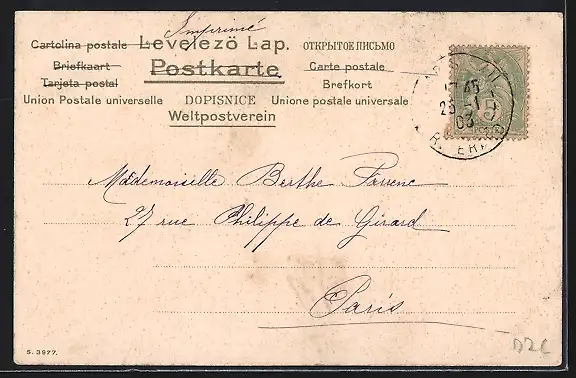 Imprimé
Cartolina postale Levelező Lap. ОТКРЫТОЕ ПИСЬМО
Briefkaart Postkarte Carte postale
Tarjeta postal Brefkort
Union Postale universelle DOPISNICE Unione postale universale
Weltpostverein
45
25 -1
03
5
Mademoiselle Berthe Farrenc
27 rue Philippe de Girard
Paris
S. 3977.
D2C